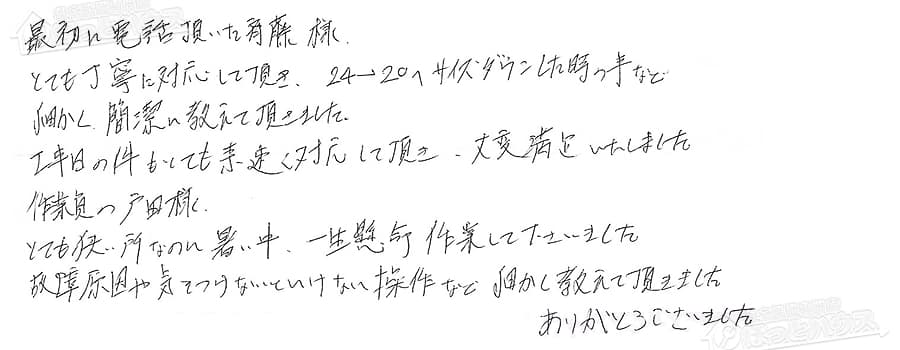 最初に電話頂いた斉藤様、
とても丁寧に対応して頂き、24→20へサイズダウンした時の事など
細かく、簡潔に教えて頂きました。
工事日の件もとても素速く対応して頂き、大変満足いたしました
作業員の戸田様、
とても狭い所なのに暑い中、一生懸命作業して下さいました
故障原因や気をつけないといけない操作など細かく教えて頂きました
ありがとうございました